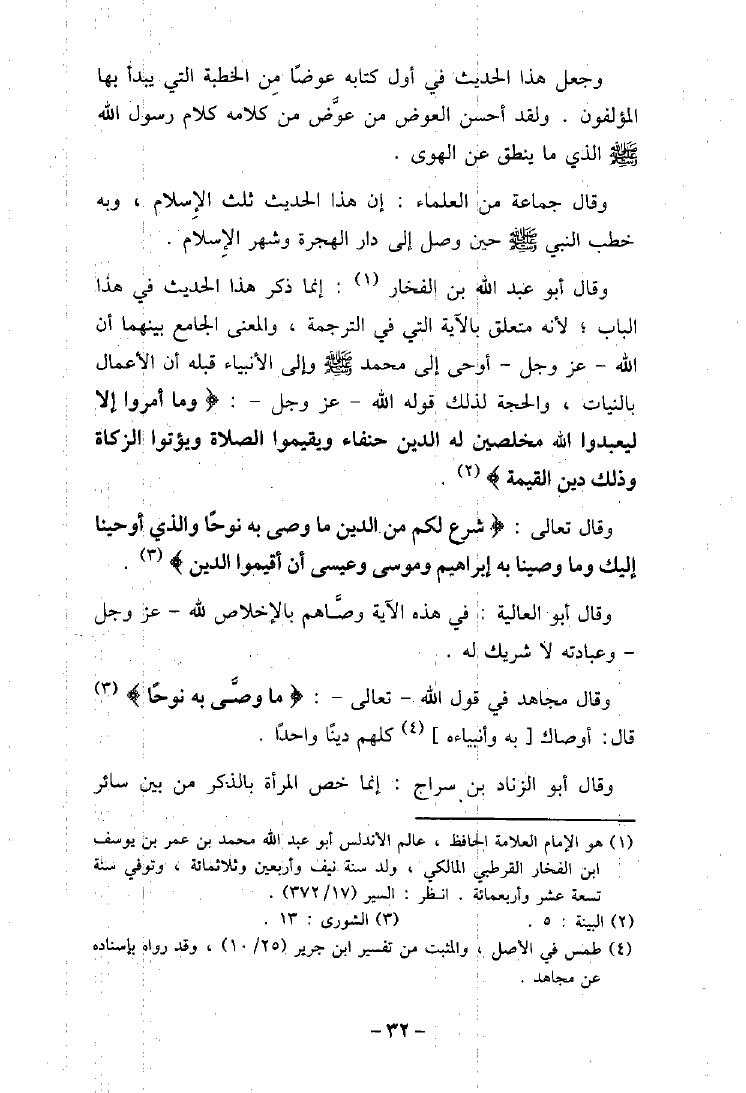 وجعل هذا الحديث في أول كتابه عوضًا مِن الخطبة التي يبدأ بها
المؤلفون . ولقد أحسن العوض من عوَّض من كلامه كلام رسول الله
ﷺ الذي ما ينطق عن الهوى .
وقال جماعة من العلماء : إن هذا الحديث ثلث الإسلام ، وبه
خطب النبي ﷺ حين وصل إلى دار الهجرة وشهر الإسلام .
وقال أبو عبد الله بن الفخار (١) : إنما ذكر هذا الحديث في هذا
الباب ؛ لأنه متعلق بالآية التي في الترجمة ، والمعنى الجامع بينهما أن
الله – عز وجل – أوحى إلى محمد ﷺ وإلى الأنبياء قبله أن الأعمال
بالنيات ، والحجة لذلك قوله الله – عز وجل – : ﴿ وما أمروا إلا
ليعبدوا الله مخلصين له الدين حنفاء ويقيموا الصلاة ويؤتوا الزكاة
وذلك دين القيمة ﴾ (٢) .
وقال تعالى : ﴿ شرع لكم من الدين ما وصى به نوحًا والذي أوحينا
إليك وما وصينا به إبراهيم وموسى وعيسى أن أقيموا الدين ﴾ (٣) .
وقال أبو العالية : في هذه الآية وصَّاهم بالإخلاص لله – عز وجل
– وعبادته لا شريك له .
وقال مجاهد في قول الله – تعالى – : ﴿ ما وصَّى به نوحًا ﴾ (٣)
قال: أوصاك [ به وأنبياءه ] (٤) كلهم دينًا واحدًا .
وقال أبو الزناد بن سراج : إنما خص المرأة بالذكر من بين سائر
(١) هو الإمام العلامة الحافظ ، عالم الأندلس أبو عبد الله محمد بن عمر بن يوسف
ابن الفخار القرطبي المالكي ، ولد سنة نيف وأربعين وثلاثمائة ، وتوفي سنة
تسعة عشر وأربعمائة . انظر : السير (١٧/ ٣٧٢) .
(٢) البينة : ٥ . (٣) الشورى : ١٣ .
(٤) طمس في الأصل ، والمثبت من تفسير ابن جرير (٢٥/ ١٠) ، وقد رواه بإسناده
عن مجاهد .
– ٣٢ –